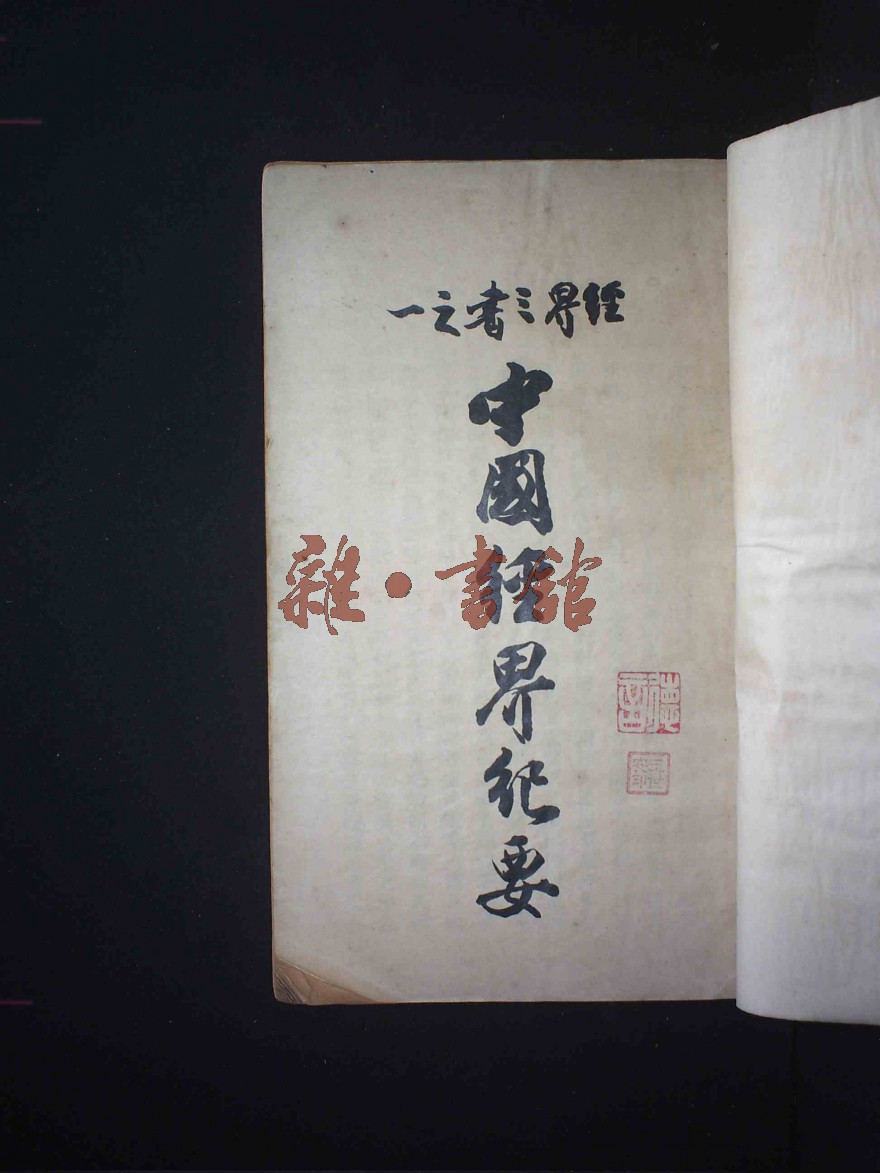 經界三書之一
中國經界紀要
雜·書館